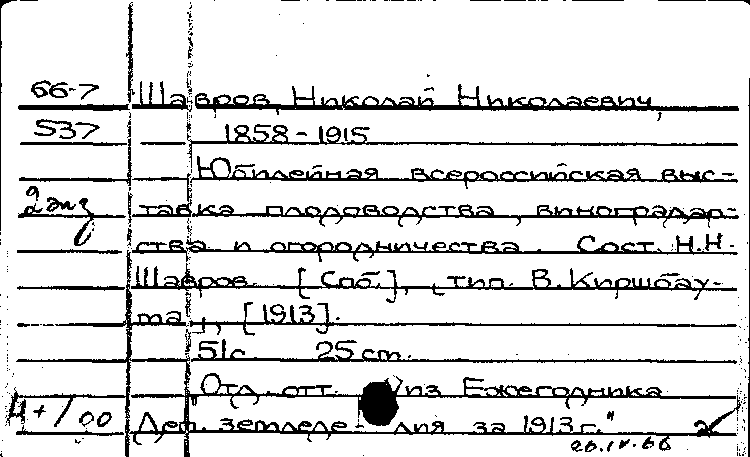 66-7 Шавров, Николай Николаевич,
537 1858-1915
Юбилейная всероссийская выс-
2 экз тавка плодоводства, виноградар-
ства и огородничества. Сост. Н.Н.
Шавров. [Спб.], тип. В. Киршбау-
ма, [1913].
51с. 25 cm.
"Отд. отт. из Ежегодника
4+/00 Деп. земледе- лия за 1913 г."
26.IV.66